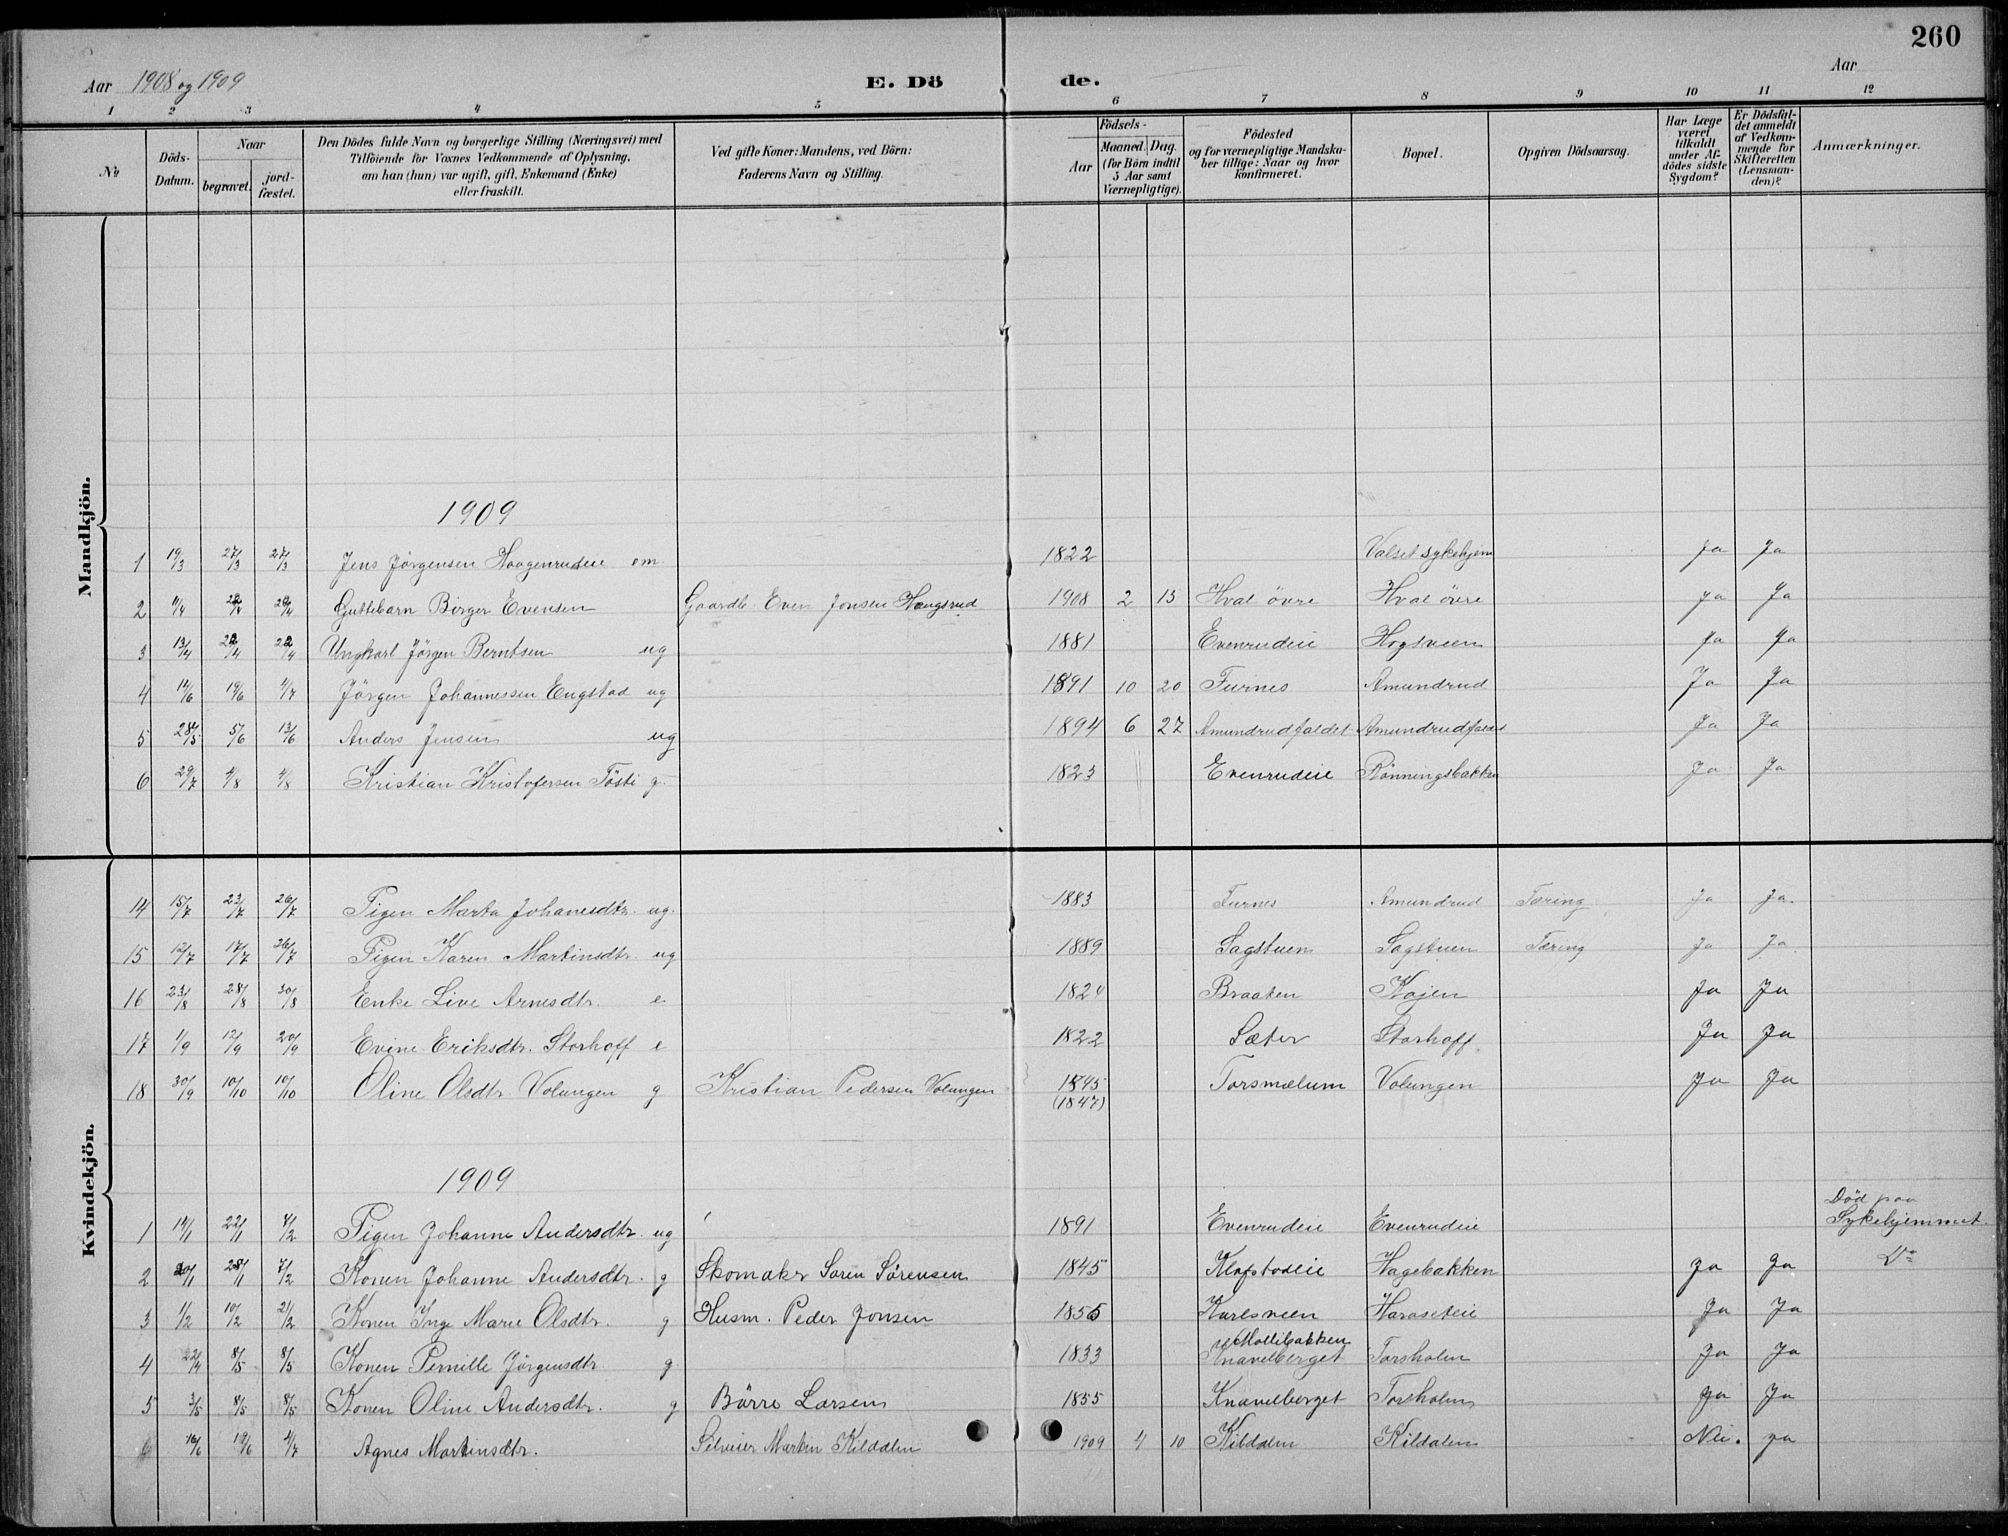 260
Aar 1908 og 1909 E. Dö de. Aar
1 2 3 4 5 6 7 8 9 10 11 12
No
Döds-Datum.
Naar
begravet. jordfæstet.
Den Dödes fulde Navn og borgerlige Stilling (Næringsvei) med
Tilföiende for Voxnes Vedkommende af Oplysning,
om han (hun) var ugift, gift, Enkemand (Enke)
eller fraskilt.
Ved gifte Koner: Mandens, ved Börn:
Faderens Navn og Stilling.
Födsels-
Aar
Maaned. Dag.
(for Börn indtil
5 Aar samt
Værnepligtige).
Födested
og for værnepligtige Mandskaber tillige: Naar og hvor
konfirmeret.
Bopæl.
Opgiven Dödsaarsag.
Har Læge
været
tilkaldt
under Afdödes sidste
Sygdom?
Er Dödsfaldet anmeldt
af Vedkommende for
Skifteretten
(Lensmanden)?
Anmærkninger.
Mandkjön.
1909
1 19/3 27/3 27/3 Jens Jörgensen Haagenrudeie em 1822 Valset sykehjem Ja Ja
2 11/4 22/4 22/4 Guttebarn Birger Evensen Gaardb. Even Jonsen Haugsrud 1908 2 13 Hval övre Hval övre ja Ja
3 13/4 22/4 22/4 Ungkarl Jörgen Berntsen ug 1881 Evenrudeie Hogsveen Ja Ja
4 14/6 19/6 4/7 Jörgen Johannessen Engstad ug 1891 10 20 Furnes Amundrud Ja Ja
5 28/5 5/6 13/6 Anders Jensen ug 1894 6 27 Amundrudfaldet Amundrudfaldet Ja Ja
6 29/7 4/8 4/8 Kristian Kristofersen Tösti g. 1823 Evenrudeie Rönningsbakken Ja Ja
Kvindekjön.
14 15/7 23/7 26/7 Pigen Marta Johanesdtr. ug. 1883 Furnes Amundrud Tæring Ja Ja.
15 12/7 17/7 26/7 Pigen Karen Martinsdtr. ug 1889 Sagstuen Sagstuen Tæring Ja Ja.
16 23/8 28/8 30/8 Enke Live Arnesdtr. e 1824 Braaten Kojen Ja Ja
17 1/9 12/9 20/9 Evine Eriksdtr. Storhoff e 1822 Sæter Storhoff. Ja Ja
18 30/9 10/10 10/10 Oline Olsdtr Volungen g Kristian Pedersen Volungen 1845 Torsmælum Volungen Ja Ja
(1847)
1909
1 14/1 22/1 4/2 Pigen Johanne Andersdtr. ug 1891 Evenrudeie Evenrudeie Död paa
Sykehjemmet.
2 20/1 28/1 7/2 Konen Johanne Andersdtr. g Skomaker Soren Sörensen 1845 Klofstadeie Hagebakken Ja Ja Do
3 1/2 10/2 21/2 Konen Inge Marie Olsdtr. g Husm. Peder Jonsen 1855 Karlsveen Haraseteie Ja Ja
Mollibakken
4 22/4 8/5 8/5 Konen Pernille Jörgensdtr g 1833 Knavelberget Torsholen Ja Ja
5 3/5 8/5 8/5 Konen Oline Andersdtr. g Börre Larsen 1855 Knavelberget Torsholen Ja Ja
6 16/6 19/6 4/7 Agnes Martinsdtr. Selveier Martin Kildalen 1909 4 10 Kildalen Kildalen Nei. ja